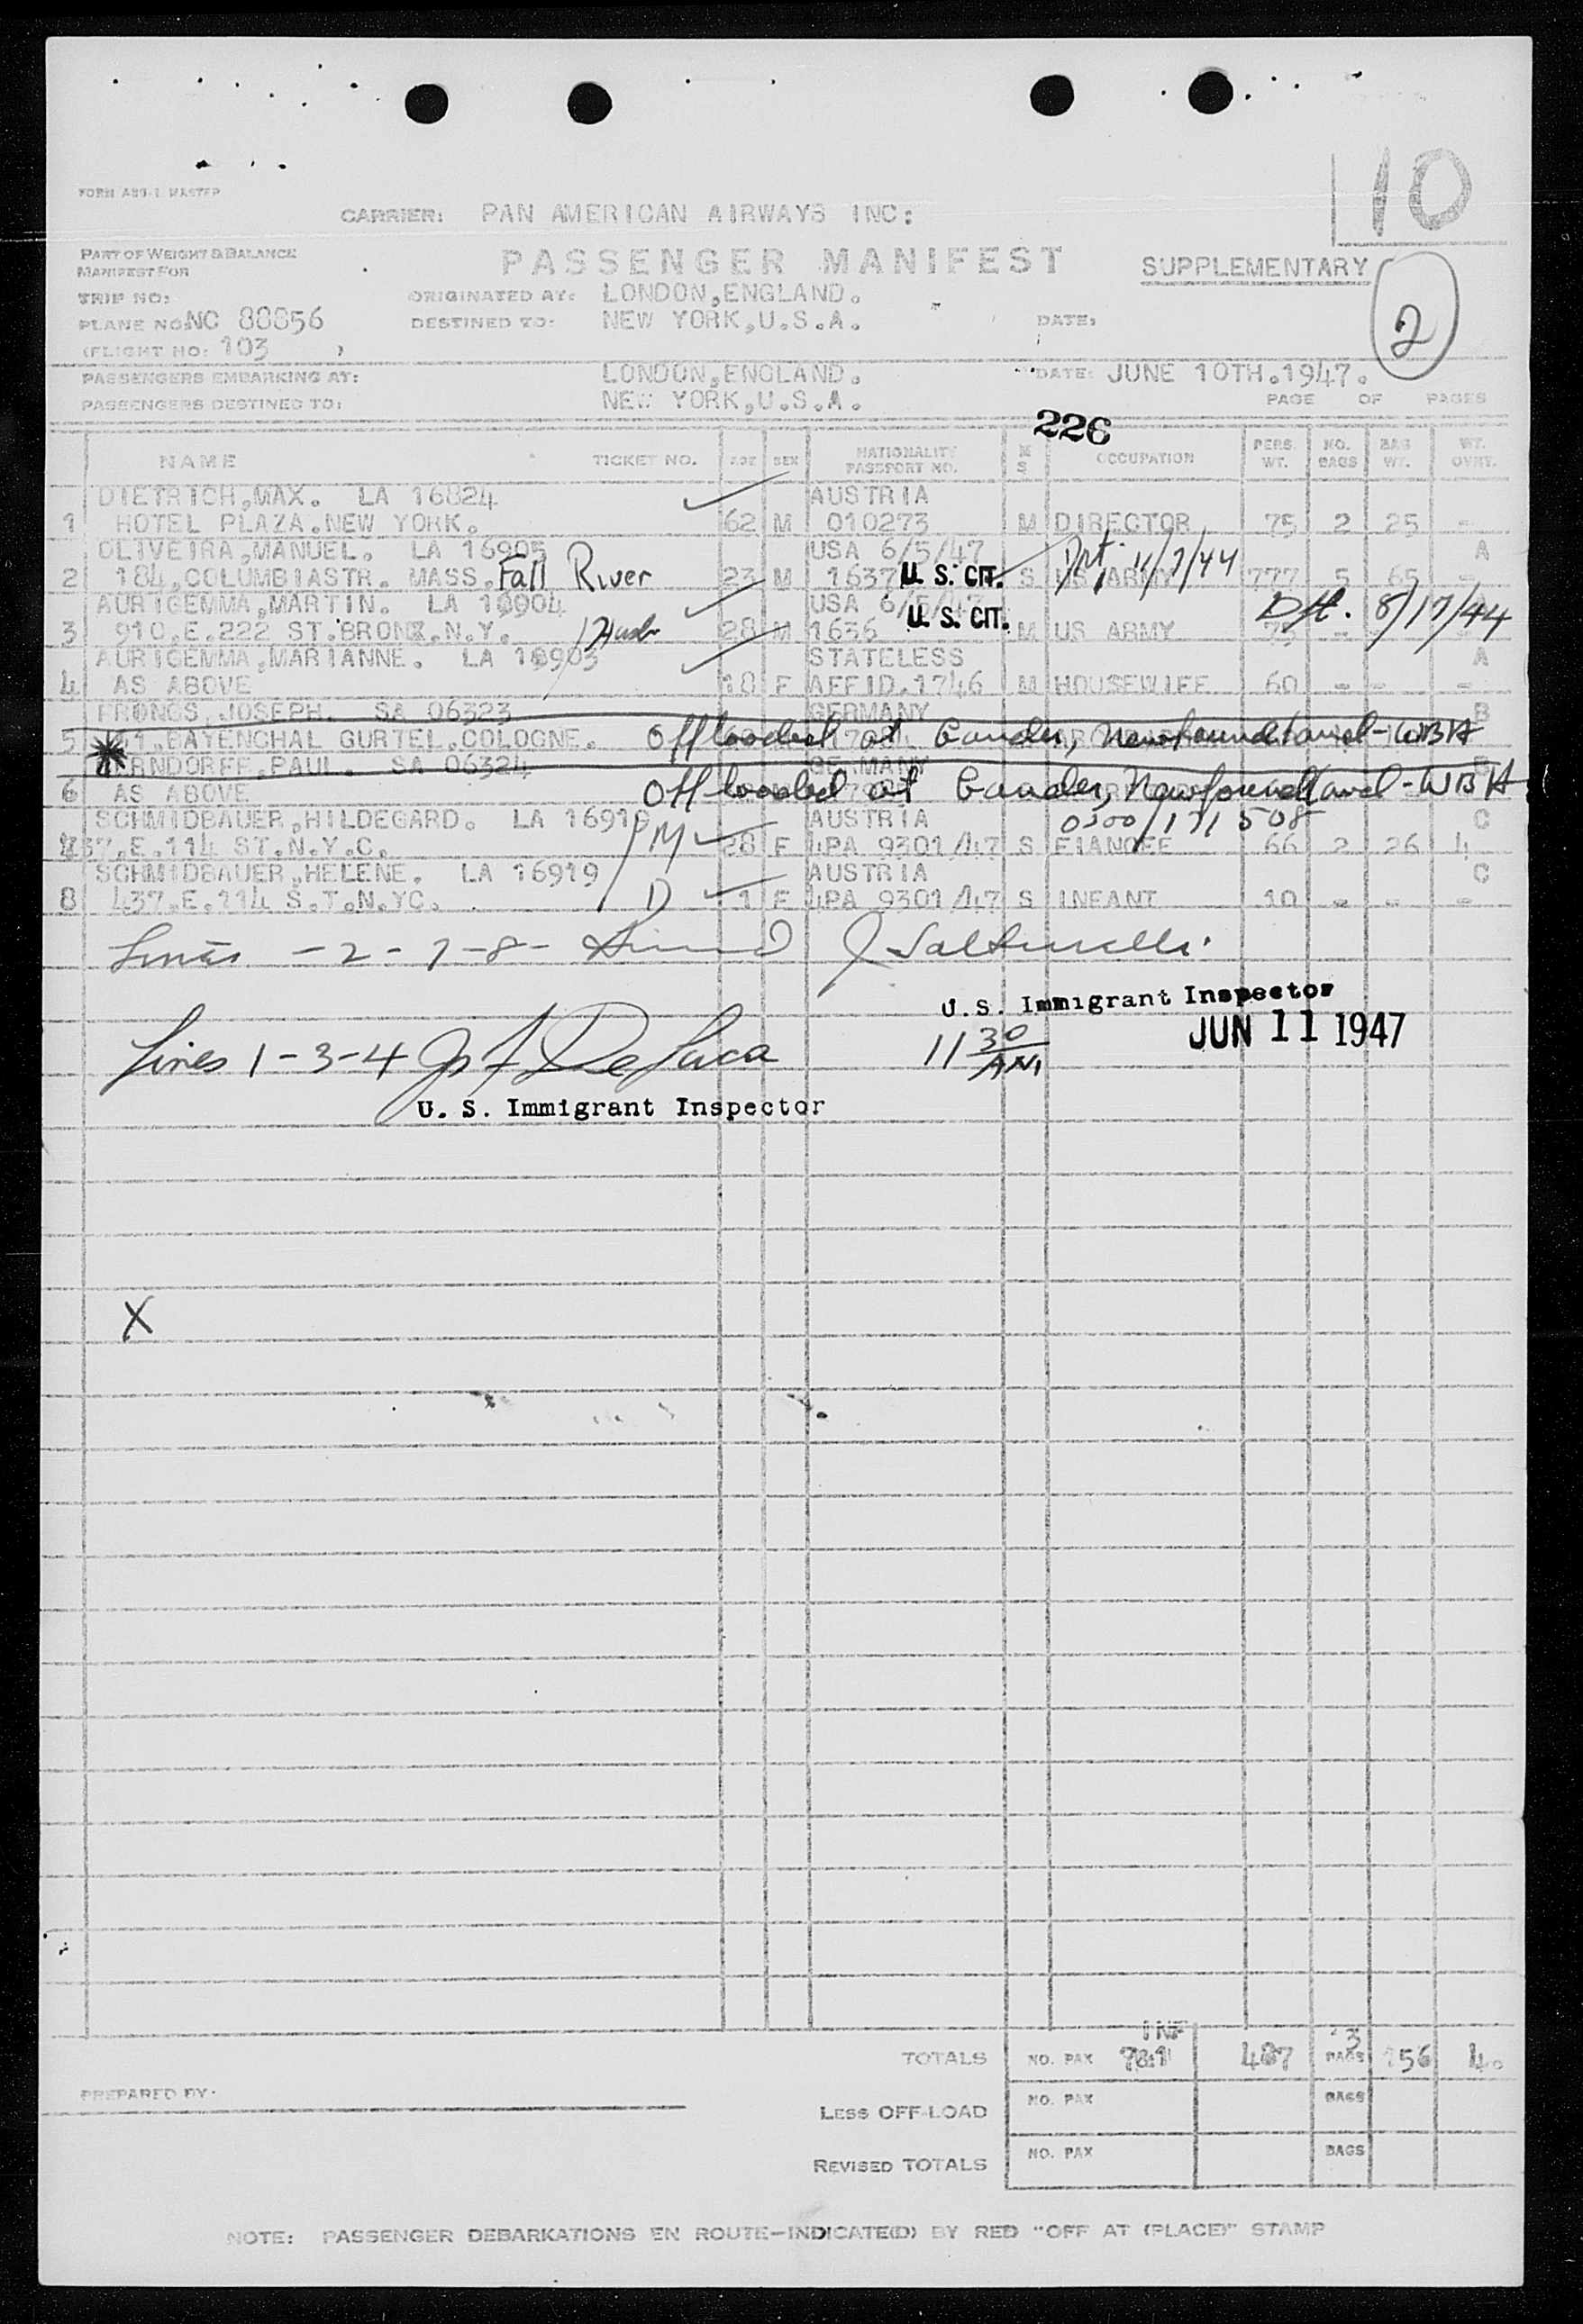 10
FORM ABS-1 MASTER
CARRIER: PAN AMERICAN AIRWAYS INC:
PART OF WEIGHT & BALANCE
MANIFEST FOR
PASSENGER MANIFEST
SUPPLEMENTARY
2
TRIP NO:
ORIGINATED AT: LONDON,ENGLAND.
PLANE NO: NC 88856
DESTINED TO: NEW YORK,U.S.A.
DATE:
(FLIGHT NO: 103 )
PASSENGERS EMBARKING AT: LONDON,ENGLAND.
DATE: JUNE 10TH.1947.
PASSENGERS DESTINED TO: NEW YORK,U.S.A.
PAGE OF PAGES
226
NAME TICKET NO. AGE SEX NATIONALITY PASSPORT NO. M S OCCUPATION PERS. WT. NO. BAGS BAG WT. WT. OVRT.
DIETRICH,MAX. LA 16824 AUSTRIA
1 HOTEL PLAZA.NEW YORK. 62 M 010273 M DIRECTOR 75 2 25 -
OLIVEIRA,MANUEL. LA 16905 USA 6/5/47 A
2 184,COLUMBIASTR. MASS. Fall River 23 M 1637 U. S. CIT. S US ARMY 11/7/44 777 5 65 -
AURIGEMMA,MARTIN. LA 16904 USA 6/5/47
3 910.E.222 ST.BRONX.N.Y. 28 M 1636 U. S. CIT. M US ARMY 8/17/44
AURIGEMMA,MARIANNE. LA 16903 STATELESS A
4 AS ABOVE 18 F AFFID.1746 M HOUSEWIFE 60 - - -
FRONGS,JOSEPH. SA 06323 GERMANY B
5 BAYENCHAL GURTEL.COLOGNE. Offloaded at Gander, Newfoundland-WBH
ERNDORFF,PAUL. SA 06324 GERMANY
6 AS ABOVE Offloaded at Gander, Newfoundland-WBH
SCHMIDBAUER,HILDEGARD. LA 16919 AUSTRIA 0300/171508 C
7 437.E.114 ST.N.Y.C. M 28 F 4PA 9301/47 S FIANCEE 66 2 26 4
SCHMIDBAUER,HELENE. LA 16919 AUSTRIA C
8 437.E.114 S.T.N.YC. D 1 F 4PA 9301/47 S INFANT 10 - - -
Lines - 2 - 7 - 8 -
U.S. Immigrant Inspector
JUN 11 1947
Lines 1-3-4 De Luca
11 30 AM
U. S. Immigrant Inspector
X
INF
TOTALS NO. PAX 487 BAGS 156 4.
PREPARED BY.
LESS OFF-LOAD NO. PAX BAGS
REVISED TOTALS NO. PAX BAGS
NOTE: PASSENGER DEBARKATIONS EN ROUTE-INDICATE(D) BY RED "OFF AT (PLACE)" STAMP